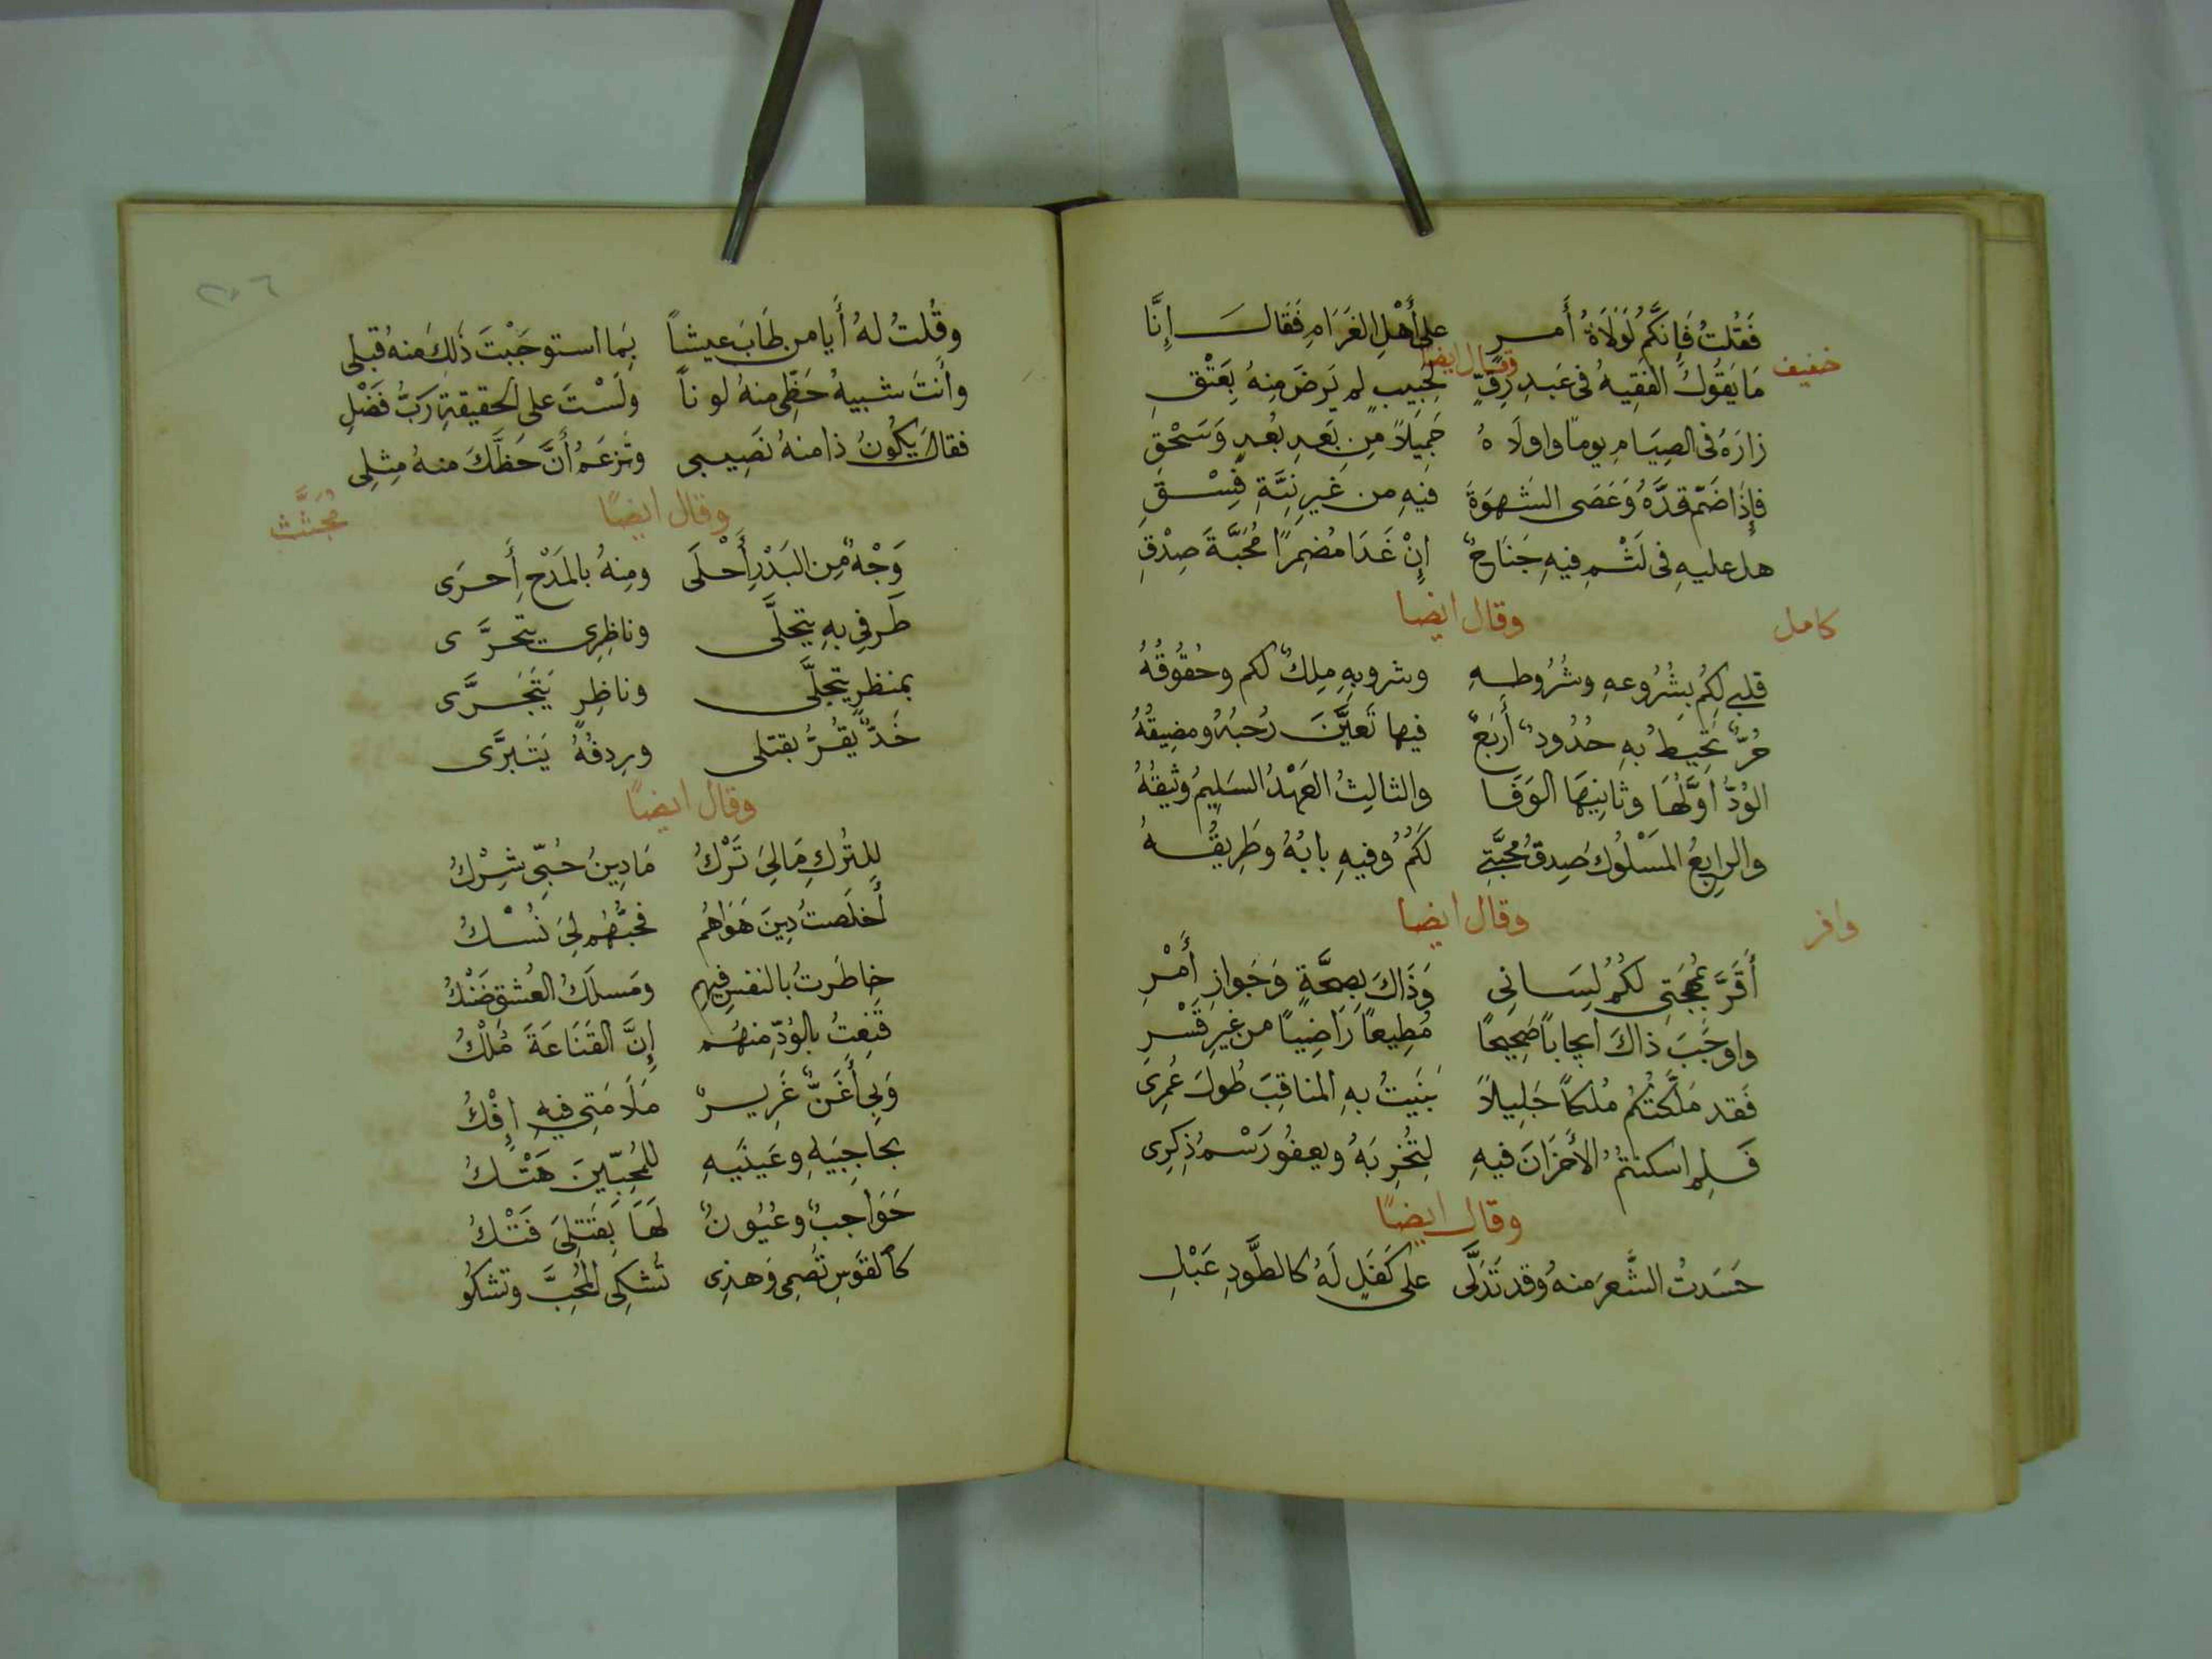 فَقُلتُ فَإِنَّكُم لَوُلَاةُ أَمرٍ على أَهْلِ الغَرَامِ فَقَالَ إِنَّا
خفيف وقال ايضا
مَا يَقُولُ الفَقِيهُ فى عَبدِ رِقٍّ لِحَبِيبٍ لم يَرضَ مِنهُ بِعَتْقِ
زارَهُ فى الصِيَامِ يوماً واولَاهُ جَمِيلاً مِن بَعدِ بُعدٍ وَسَحْقِ
فإِذَا ضَمّ قدَّهُ وَعَصَى الشَهوَةَ فيهِ من غَيرِ نِيَّةِ فِسْقِ
هل عليهِ فى لَثْمِ فيهِ جَنَاحٌ إِنْ غَدَا مُضمِرًا مُحَبَّةَ صِدْقِ
كامل وقال ايضا
قلبى لكُم بِشُرُوعِهِ وشُرُوطِهِ وشروبِهِ مِلكٌ لكم وحُقُوقُهُ
حُرٌّ تُحِيطُ بهِ حُدُودٌ أَربَعٌ فيها تَعيَّنَ رُحبُهُ ومضِيقُهُ
الوُدُّ أوَّلُهَا وثانِيهَا الوَفَا والثالِثُ العَهْدُ السَلِيمُ وثِيقُهُ
والرابِعُ المَسْلُوكُ صِدقُ مَحبَّتِي لَكُمُ وفيهِ بابُهُ وطَرِيقُهُ
وافر وقال ايضا
أَقَرَّ بمُهجَتِى لكُمُ لِسَانِي وَذَاكَ بِصِحَّةٍ وَجَوازِ أَمْرِ
واوجَبَ ذاكَ ايجاباً صَحِيحًا مُطِيعاً رَاضِياً من غيرِ قَسْرِ
فَقد مَلَّكتُكُم مُلكاً جَلِيلاً بَنَيتُ بهِ المناقِبَ طُولَ عُمرِى
فَلِم اسكنتُمُ الأَحزَانَ فيهِ لِتُخرِبَهُ ويعفُو رَسْمُ ذِكرِى
وقال ايضًا
حَسَدتُ الشَّعرَ منهُ وقد تَدَلَّى على كَفَلٍ لَهُ كالطَّودِ عَبْلِ
٢٠٦
وقُلتُ لهُ أَيا من طَابَ عيشاً بِمَا استوجَبْتَ ذَلِكَ منهُ قبلى
وأنتَ شبيهُ حَظِّى منهُ لوناً ولَسْتَ على الحقيقةِ رَبَّ فَضْلِ
فقالَ يَكُونُ ذا منهُ نَصِيبى وتزعَمُ أَنَّ حَظَّكَ منهُ مِثلِى
وقال ايضًا مُجتَثّ
وَجْهٌ مِن البَدْرِ أَحْلَى ومِنهُ بالمَدْحِ أَحرَى
طَرفِي بهِ يتحَلَّى وناظِرِى يتحَرَّى
بمنظرٍ يتجَلَّى وناظِرٍ يَتَجَرَّى
خَدٌّ يُقُرُّ بقتلى ورِدفُهُ يَتَبَرَّى
وقال ايضًا
لِلتُركِ مَالِيَ تَرْكُ مَا دِينُ حُبّى شِرْكُ
أَخلَصتُ دِينَ هَوَاهُم فحُبُّهُم لِيَ نُسْكُ
خاطَرتُ بالنفسِ فيهِم ومَسلَكُ العُشقِ ضَنْكُ
قَنِعتُ بالوُدِّ منهُم إِنَّ القَنَاعَةَ مُلْكُ
وَبِى أَغَنٌّ غَرِيرٌ مَلَامَتِى فيهِ إِفْكُ
بحاجِبَيهِ وعَينَيهِ للمُحِبّينَ هَتْكُ
حَوَاجبٌ وعُيُونٌ لَهَا بِقَتلِىَ فَتْكُ
كالقَوسِ تُصمِى وَهذِى تُشكِى المُحِبَّ وتشكُو